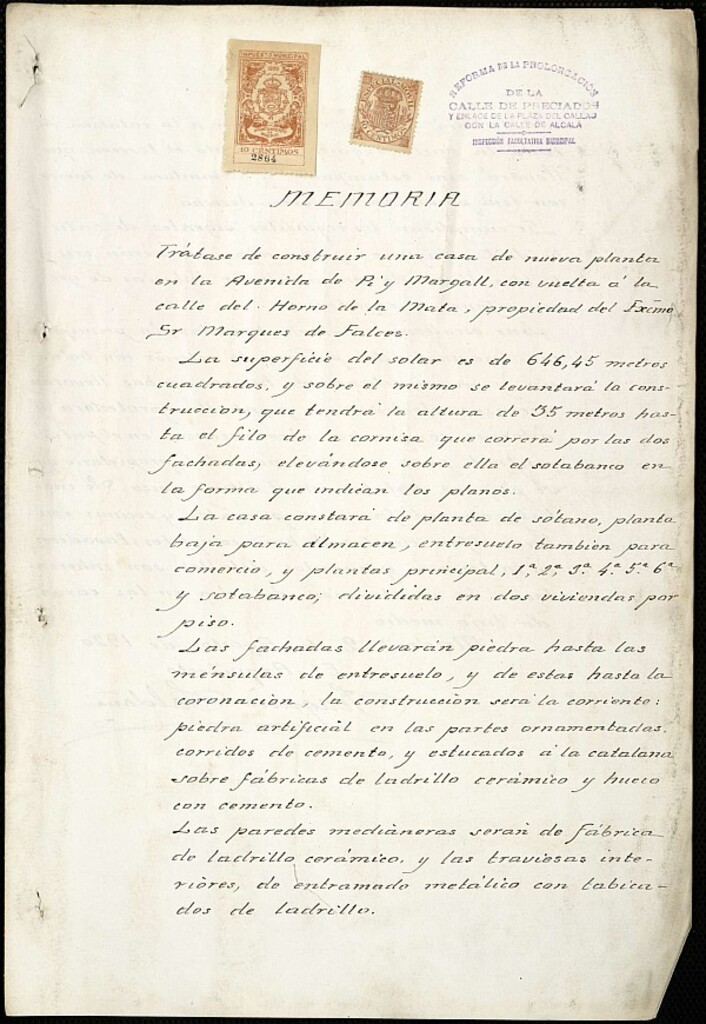 IMPUESTO MUNICIPAL
10 CENTIMOS
2864
REFORMA DE LA PROLONGACIÓN
DE LA
CALLE DE PRECIADOS
Y ENLACE DE LA PLAZA DEL CALLAO
CON LA CALLE DE ALCALA
INSPECCIÓN FACULTATIVA MUNICIPAL
MEMORIA
Trátase de construir una casa de nueva planta
en la Avenida de Pi y Margall, con vuelta á la
calle del Horno de la Mata, propiedad del Excmo
Sr Marques de Falces.
La superficie del solar es de 646,45 metros
cuadrados, y sobre el mismo se levantará la cons-
trucción, que tendrá la altura de 35 metros has-
ta el filo de la cornisa que correrá por las dos
fachadas, elevándose sobre ella el sotabanco en
la forma que indican los planos.
La casa constará de planta de sótano, planta
baja para almacen, entresuelo también para
comercio, y plantas principal, 1ª, 2ª, 3ª 4ª 5ª 6ª
y sotabanco; divididas en dos viviendas por
piso.
Las fachadas llevarán piedra hasta las
ménsulas de entresuelo, y de estas hasta la
coronación, la construcción será la corriente:
piedra artificial en las partes ornamentadas,
corridos de cemento, y estucados á la catalana
sobre fábricas de ladrillo cerámico y hueco
con cemento.
Las paredes medianeras serán de fábrica
de ladrillo cerámico, y las traviesas inte-
riores, de entramado metálico con tabica-
dos de ladrillo.